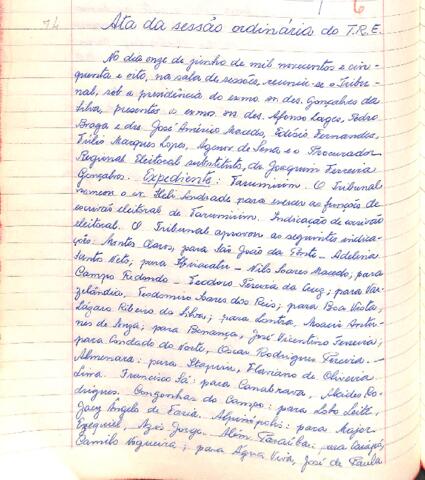 74
Ata da sessão ordinária do T.R.E.
No dia onze de junho de mil novecentos e cin-
quenta e oito, na sala de sessões, reuniu-se o Tribu-
nal, sob a presidência do exmo. sr. des. Gonçalves da
Silva, presentes o exmo. sr. des. Afonso Lages, Pedro
Braga e drs. José Américo Macedo, Edésio Fernandes,
Túlio Marques Lopes, Agenor de Sena e o Procurador
Regional Eleitoral substituto, dr. Joaquim Ferreira
Gonçalves. Expediente: Tarumirim. O Tribunal
nomeou o sr. Heli Andrade para exercer as funções de
escrivão eleitoral de Tarumirim. Indicação de escrivão
eleitoral. O Tribunal aprovou as seguintes indica-
ções: Montes Claros, para São João da Ponte - Adelina
Santos Neto; para - Nilo Soares Macedo; para
Campo Redondo - Teodoro Pereira da Cruz; para Var-
zelândia, Teodomiro Soares dos Reis; para Boa Vista,
Lázaro Ribeiro da Silva; para Lontra, Moacir Antu-
nes de Souza; para Bonança, José Vicentino Ferreira;
para Condado do Norte, Oscar Rodrigues Pereira. -
Almenara: para Itapuru, Flaviano de Oliveira
Lima. Francisco Sá: para Canabrava, Alcides Ro-
drigues. Congonhas do Campo: para Lobo Leite,
Joaq Angelo de Faria. Alpinópolis: para Major
Ezequiel, Azis Jorge. Além Paraíba:
Camilo Nogueira; para Agua Viva, José de Paula